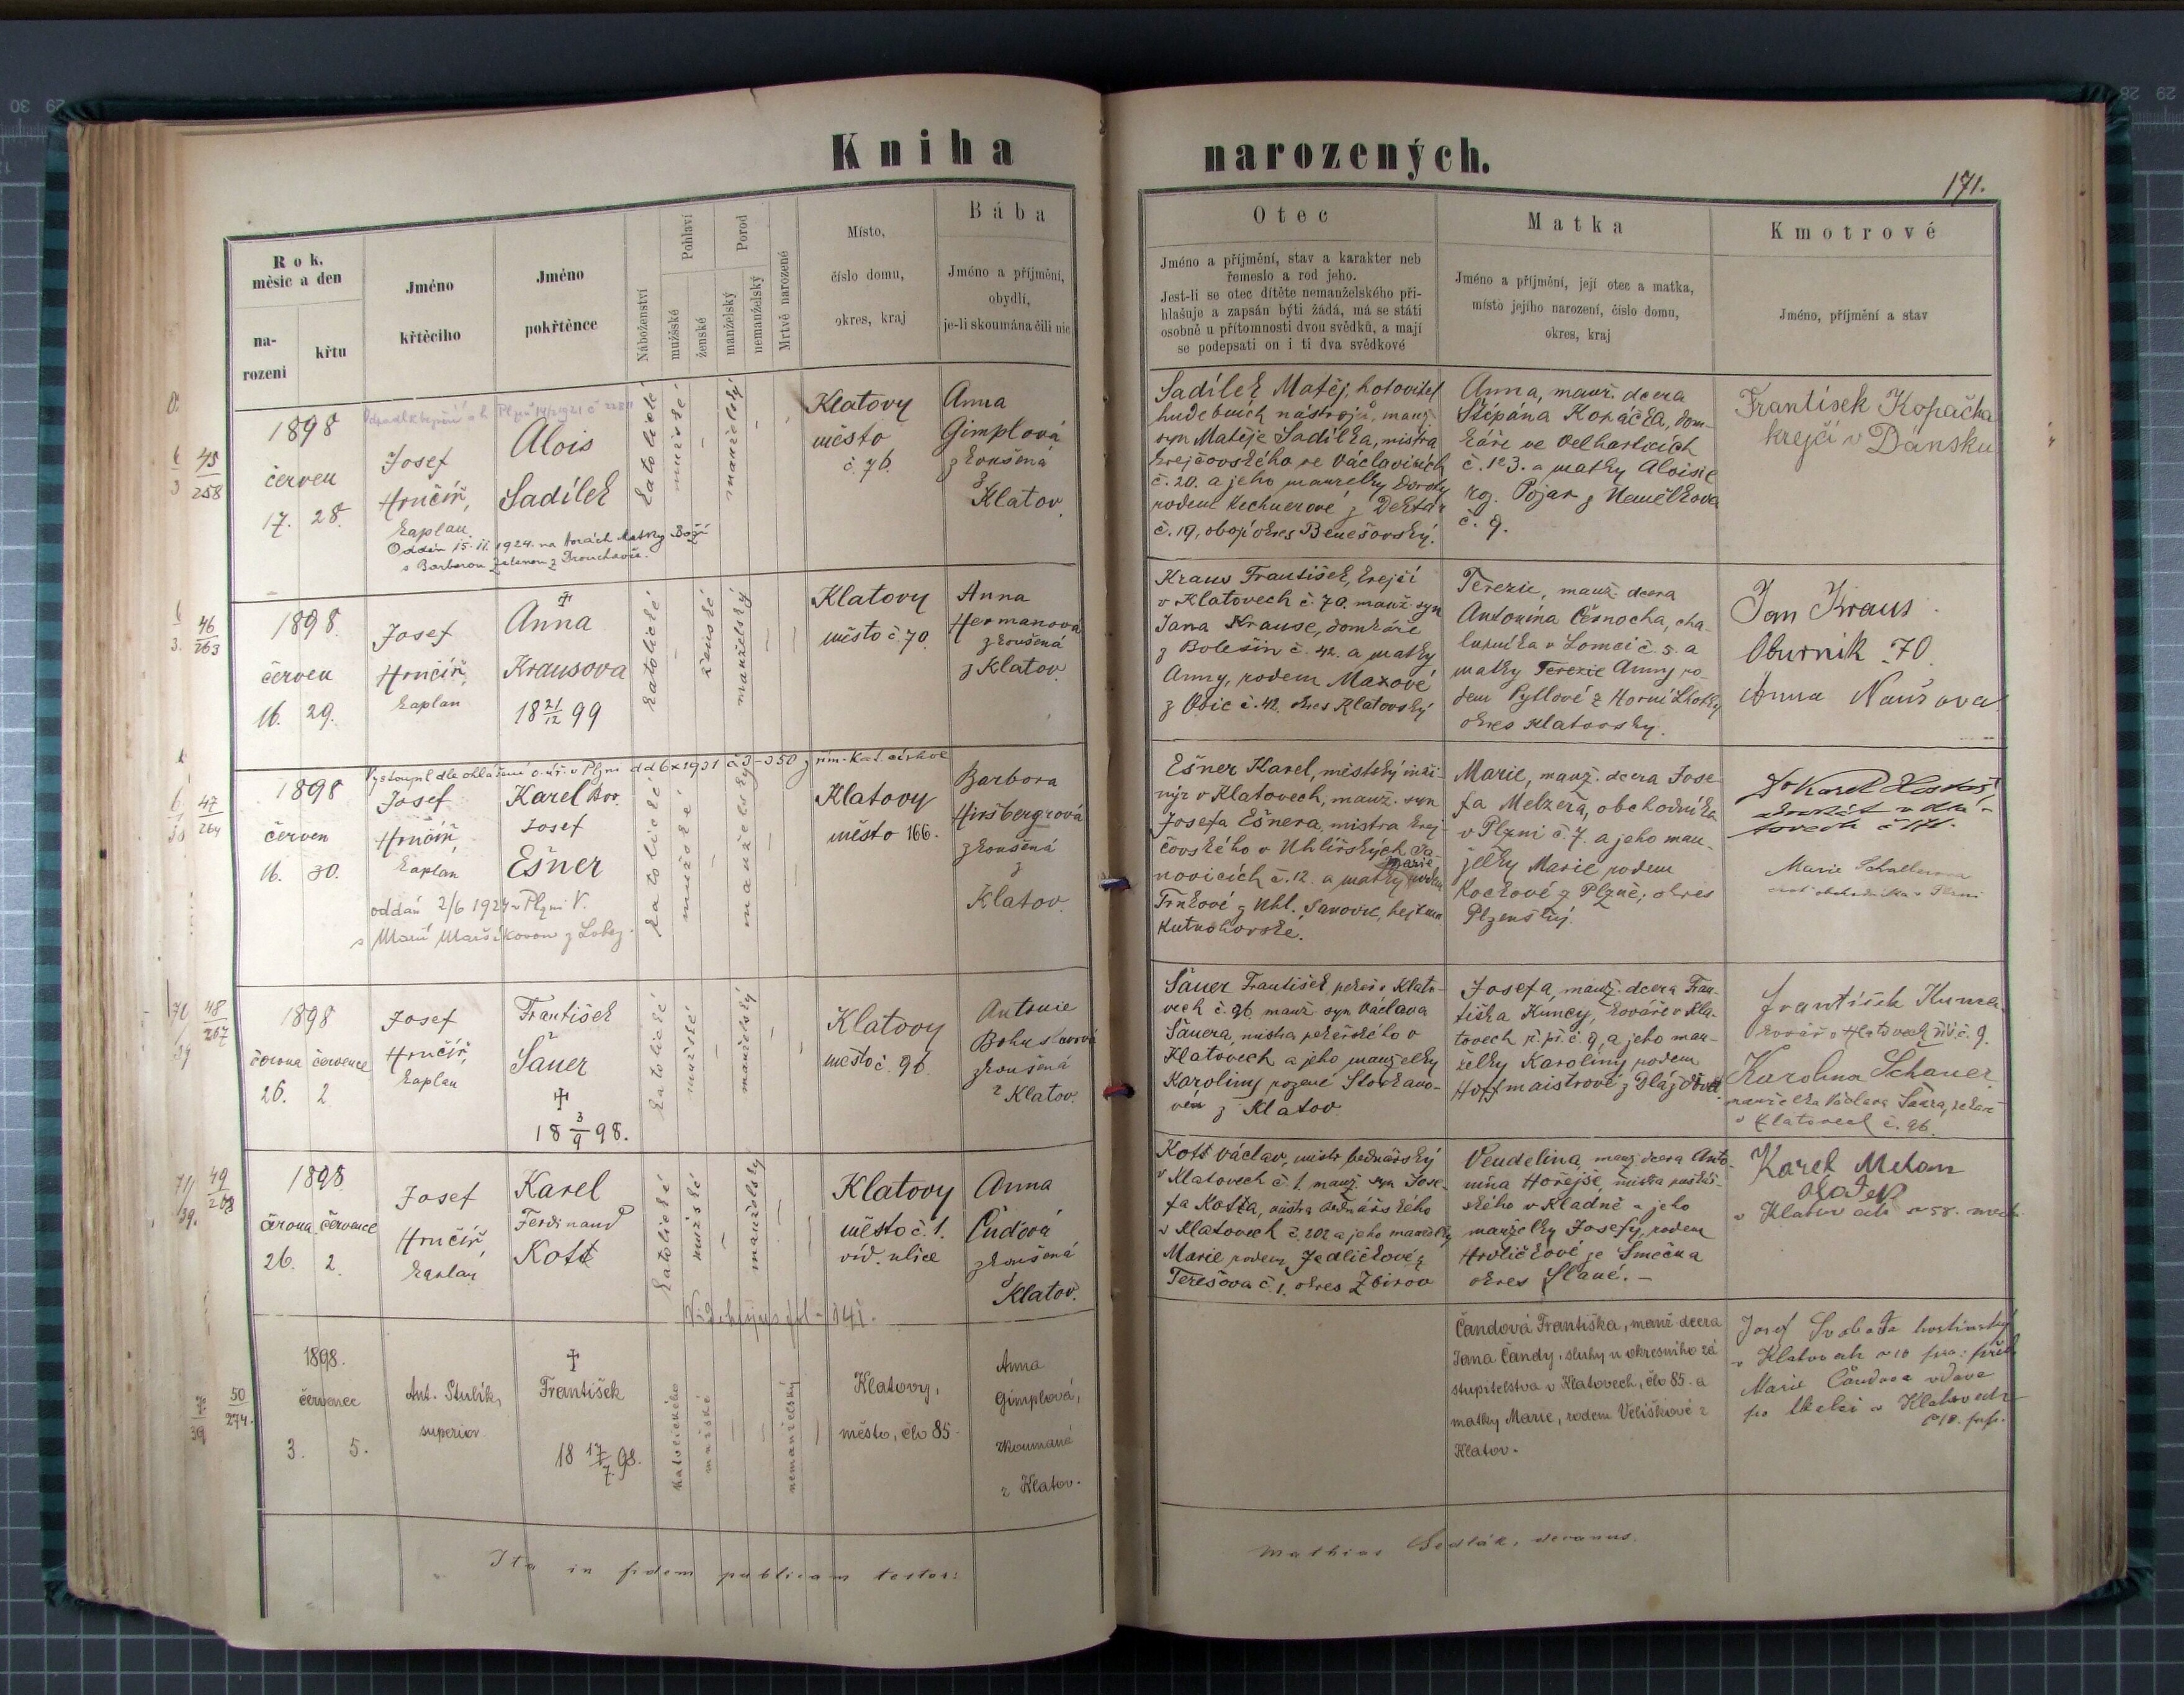 Kniha narozených.
171.
Rok, měsíc a den
narození
křtu
Jméno křtěcího
Jméno pokřtěnce
Náboženství
Pohlaví
mužšské
ženské
Porod
manželský
nemanželský
Mrtvě narozené
Místo,
číslo domu,
okres, kraj
Bába
Jméno a příjmění,
obydlí,
je-li skoumána čili nic
Otec
Jméno a příjmění, stav a karakter neb
řemeslo a rod jeho.
Jest-li se otec dítěte nemanželského při-
hlašuje a zapsán býti žádá, má se státi
osobně u přítomnosti dvou svědků, a mají
se podepsati on i ti dva svědkové
Matka
Jméno a příjmění, její otec a matka,
místo jejího narození, číslo domu,
okres, kraj
Kmotrové
Jméno, příjmění a stav
45
258
1898
červen
17. 28.
Josef
Hručíř,
kaplan
Alois
Sadílek
Oddán 15.II.1924 na horách Matky Boží
s Barborou
katolické
mužské
manželský
Klatovy
město
č. 76.
Anna
Gimplová
zkoušená
z
Klatov.
Sadílek Matěj, hotovitel
hudebních nástrojů, manž.
syn Matěje Sadílka, mistra
krejčovského ve Václavicích
č. 20. a jeho manželky Doroty
rodem
č. 19, obojí okres Benešovský.
Anna, manž. dcera
Štěpána Kopáčka, dom-
káře ve Velharticích
č. 103. a matky Aloisie
roz. Pojar z Nemělkova
č. 9.
Frantisek Kopačka
krejčí v Dánsku
46
263
1898.
červen
16. 29.
Josef
Hručíř,
kaplan
†
Anna
Krausova
18 21/12 99
katolické
ženské
manželský
Klatovy
město č. 70.
Anna
Hermanová
zkoušená
z Klatov.
Kraus František, krejčí
v Klatovech č. 70. manž. syn
Jana Krause, domkáře
z Bolešin č. 42. a matky
Anny, rodem Maxové
z Obic č. 42. okres Klatovský
Terezie, manž. dcera
Antonína Černocha, cha-
lupníka v Lomci č. 5. a
matky Terezie Anny ro-
dem Pytlové z Horní Lhotky
okres Klatovský.
Jan Kraus
Oburnik 70.
Anna
47
264
Vystoupil dle ohlášení o. úř. v Plzni dd 6 x 1931 č 3-350 z řím-kat. církve
1898
červen
16. 30.
Josef
Hručíř,
kaplan
Karel Bor.
Josef
Ešner
oddán 2/6 1927 v Plzni V.
s Marií Maršíkovou z Lobez.
katolické
mužské
manželský
Klatovy
město 166.
Barbora
Hiršbergrová
zkoušená
z
Klatov.
Ešner Karel, městský inže-
nýr v Klatovech, manž. syn
Josefa Ešnera, mistra krej-
čovského v Uhlířských Ja-
novicích č. 12. a matky Marie rodem
Trnkové z Uhl. Janovic, hejtman.
Kutnohorské.
Marie, manž. dcera Jose-
fa Melzera, obchodníka
v Plzni č. 7. a jeho man-
želky Marie rodem
Kočkové z Plzně, okres
Plzeňský.
Marie
choť obchodníka v Plzni
48
267
1898
června července
26. 2
Josef
Hručíř,
kaplan
František
Šauer
†
18 3/9 98.
katolické
mužské
manželský
Klatovy
město č. 96.
Antonie
Bohuslavová
zkoušená
z Klatov.
Šauer František, pekař v Klato-
vech č. 96 manž. syn Václava
Šauera, mistra pekařského v
Klatovech a jeho manželky
Karoliny rozené
z Klatov
Josefa, manž. dcera Fran-
tiška Kuncy, kováře v Kla-
tovech ř. př. č. 9, a jeho man-
želky Karoliny rodem
Hoffmaistrové z
František Kunca
kovář v Klatovech říš. č. 9.
Karolina Schauer
manželka Václava Šaura, pekaře
v Klatovech č. 96.
49
268
1898
června července
26. 2.
Josef
Hručíř,
kaplan
Karel
Ferdinand
Kott
katolické
mužské
manželský
Klatovy
město č. 1.
víd. ulice
Anna
Čudová
zkoušená
z
Klatov.
Kott Václav, mistr bednářský
v Klatovech č. 1. manž. syn Jose-
fa Kotta, mistra bednářského
v Klatovech č. 202 a jeho manželky
Marie rodem Jedličkové z
Terešova č. 1. okres Zbirov
Vendelina, manž. dcera Anto-
nína Hořejše, mistra
ského v Kladně a jeho
manželky Josefy, rodem
Hrdličkové ze Smečna
okres Slané. -
Karel
50
274.
1898.
červenec
3. 5.
Ant. Stulík,
superior
†
František
18 17/7 98.
katolického
mužské
nemanželský
Klatovy,
město, čís 85.
Anna
Gimplová,
zkoumaná
z Klatov.
Čandová Františka, manž. dcera
Jana Čandy, sluhy u okresního za-
stupitelstva v Klatovech, čís 85. a
matky Marie, rodem Veliškové z
Klatov.
Josef Svoboda hostinský
v Klatovech
Marie Čandova vdova
v Klatovech
Ita in fidem publicam testor:
Mathias Sedlák, decanus.